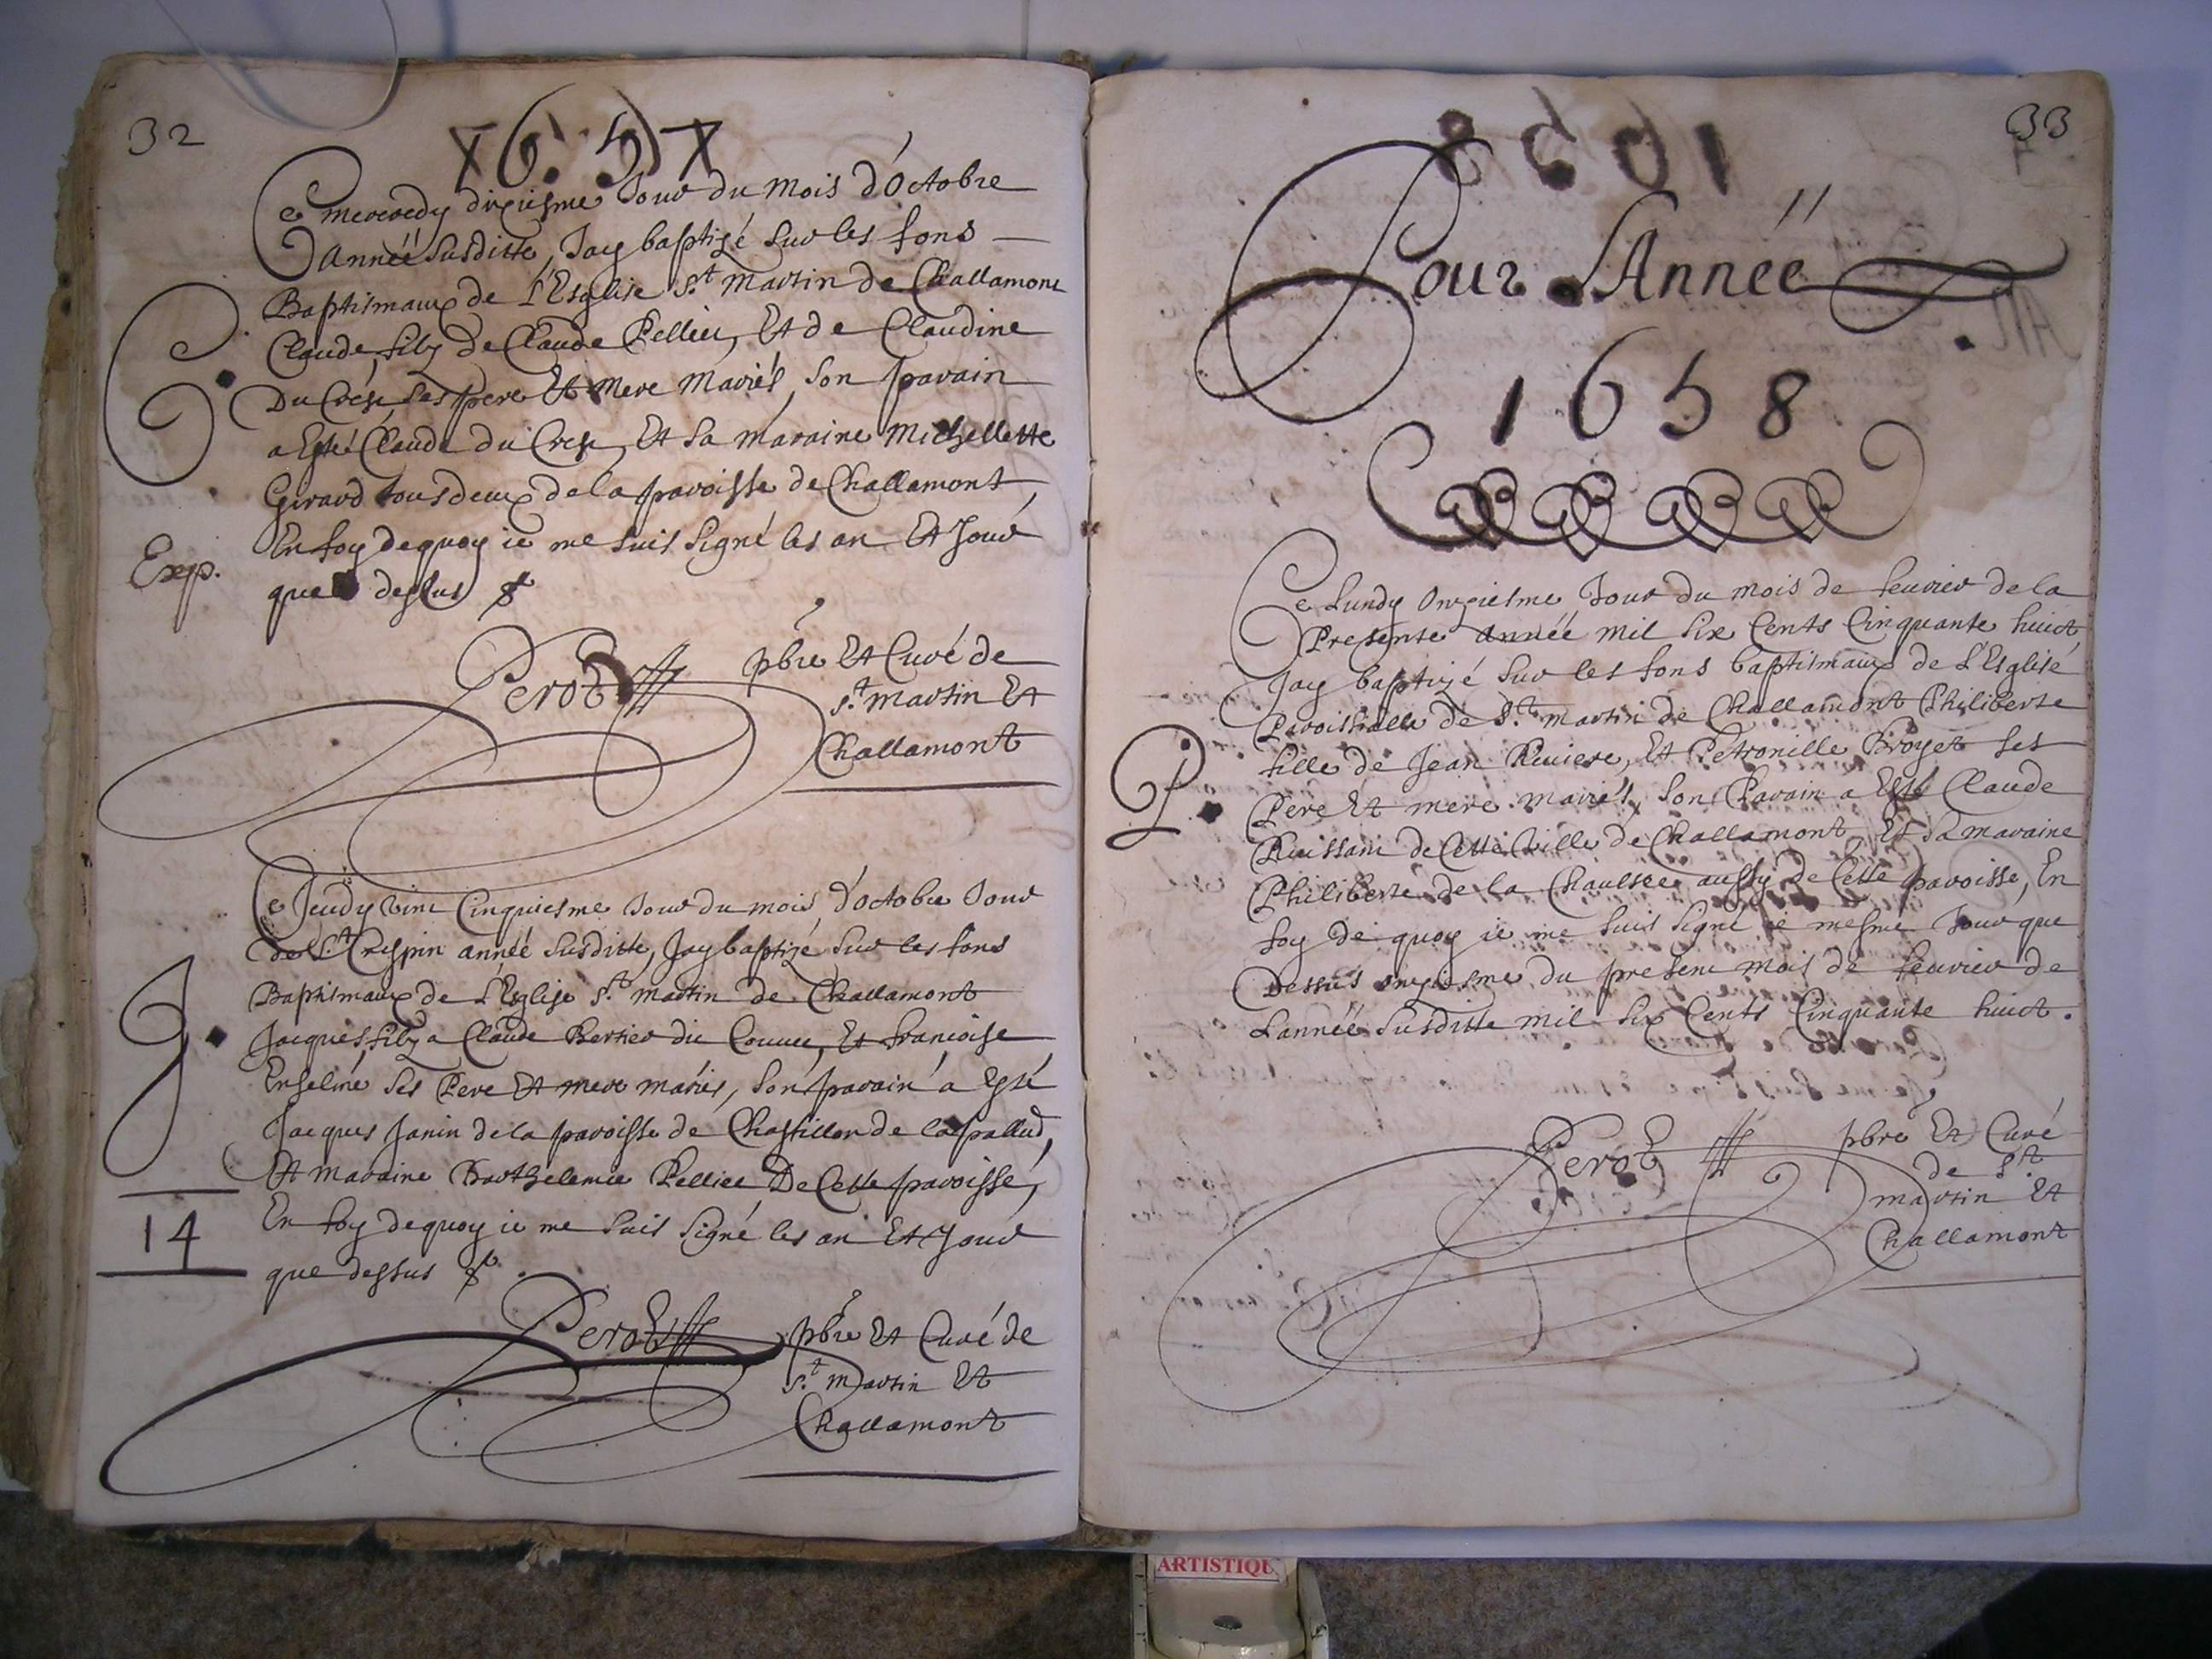 32
1657
Ce mercredy dixiesme Jour du mois d'Octobre
D'Année Susditte, Jay baptizé Sur les fons
Baptismaux de L'Esglise St. Martin de Challamont
Claude, filz de Claude Pellier, Et de Claudine
Du Crest, ses pere Et Mere Mariés, Son parain
a Esté Claude du Crest, Et Sa maraine Michellette
Girard tous deux de la paroisse de Challamont,
En foy de quoy ie me Suis Signé les an Et Jour
que dessus
C.
Exp.
Perot pbre Et Curé de
St. martin Et
Challamont
Ce Jeudy Vint Cinquiesme Jour du mois d'octobre Jour
de St Crespin année Susditte, Jay baptizé Sur les fons
Baptismaux de L'Esglise St. martin de Challamont
Jacques, filz a Claude Bertier dit, Et francoise
Enseline Ses Pere Et mere mariés, Son parain a Esté
Jacques Janin de la paroisse de Chastillon de la pallud,
Et maraine Barthelemie Pelliee De Cette paroisse,
En foy de quoy ie me Suis Signé les an Et Jour
que dessus
J.
14
Perot pbre Et Curé de
St. Martin Et
Challamont
33
1658
Pour L'Année
1658
Ce Lundy Onziesme Jour du mois de feurier de la
Presente année mil Six Cents Cinquante huict,
Jay baptizé Sur les fons baptismaux de L'Esglise
Paroissialle de St. martin de Challamont Philiberte
fille de Jean Riuiere, Et Petronille Broyet Ses
Pere Et mere mariés, Son Parain a Esté Claude
Ruissant de Cette Ville de Challamont, Et Sa maraine
Philiberte de la Chaulsée aussy de Cette paroisse, En
foy de quoy ie me Suis Signé ce mesme Jour que
Dessus onziesme du present mois de feurier de
L'année Susditte mil Six Cents Cinquante huict.
P.
Perot pbre Et Curé
de St.
martin Et
Challamont
ARTISTIQU